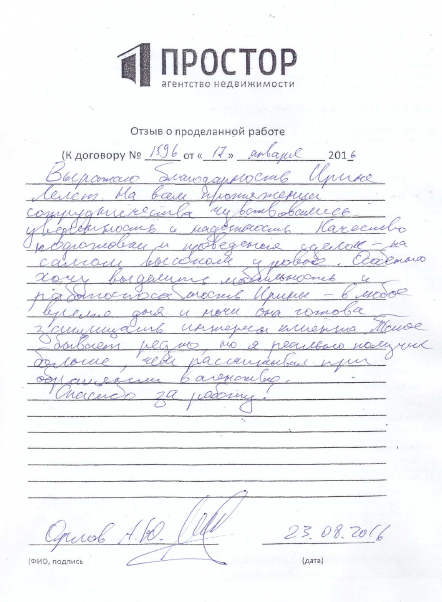 ПРОСТОР
агентство недвижимости
Отзыв о проделанной работе
(К договору № 1596 от « 17 » января 2016
Выражаю благодарность Ирине
Лелет На всем протяжении
сотрудничества чувствовались
уверенность и надежность. Качество
подготовки и проведения сделок – на
самом высоком уровне. Особенно
хочу выделить мобильность и
работоспособность Ирины – в любое
время дня и ночи она готова
защищать интересы клиента Такое
бывает редко но я реально получил
больше, чем рассчитывал при
обращении в агентство.
Спасибо за работу!
Орлов А.Ю. 23.08.2016
(ФИО, подпись (дата)